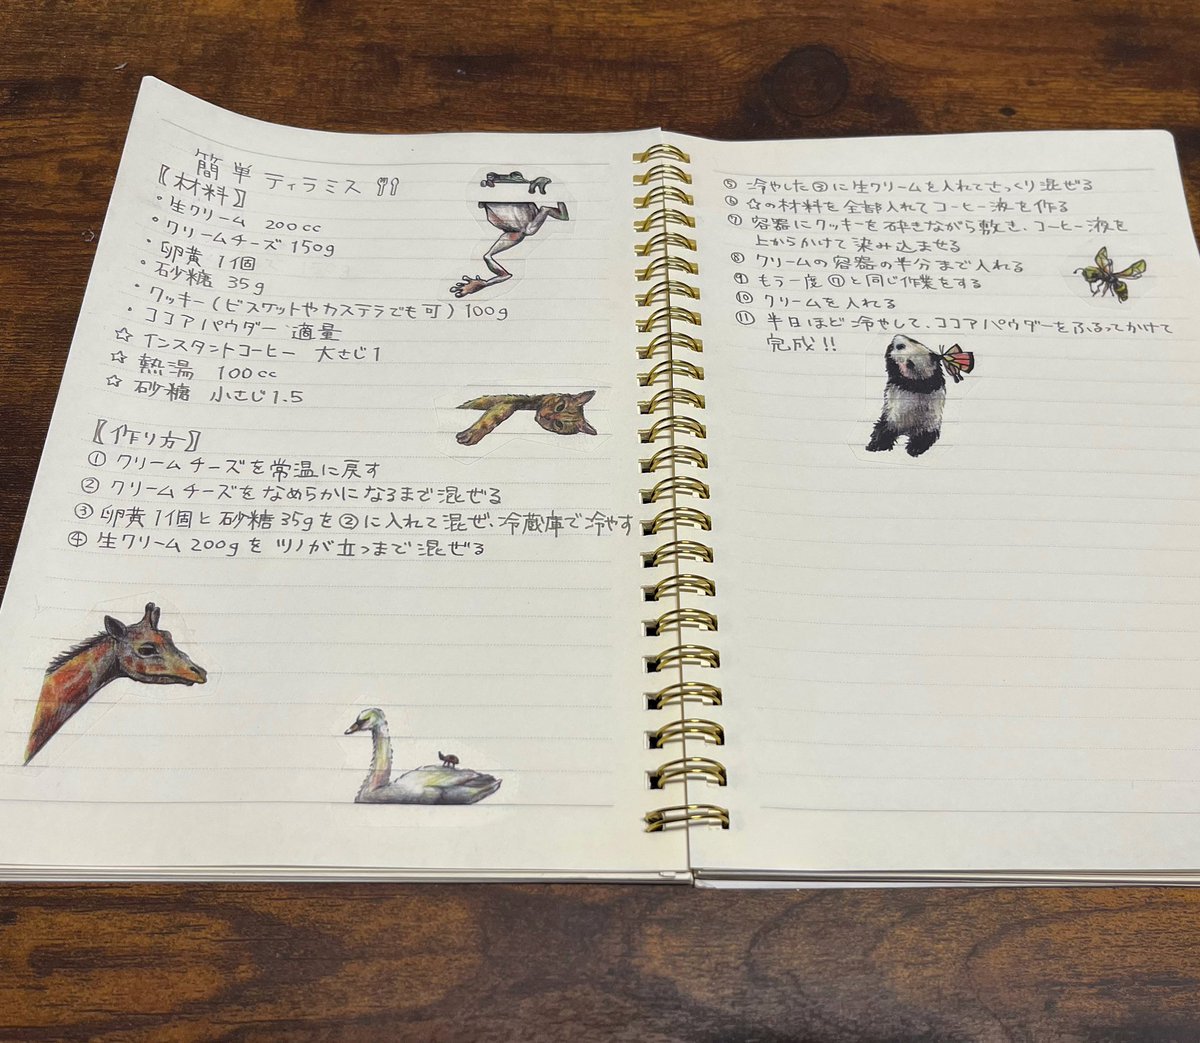 簡単 ティラミス
〖材料〗
・生クリーム 200cc
・クリームチーズ 150g
・卵黄 1個
・砂糖 35g
・クッキー(ビスケットやカステラでも可) 100g
・ココアパウダー 適量
☆ インスタントコーヒー 大さじ1
☆ 熱湯 100cc
☆ 砂糖 小さじ1.5
〖作り方〗
① クリームチーズを常温に戻す
② クリームチーズをなめらかになるまで混ぜる
③ 卵黄1個と砂糖35gを②に入れて混ぜ、冷蔵庫で冷やす
④ 生クリーム200gをツノが立つまで混ぜる
⑤ 冷やした③に生クリームを入れてさっくり混ぜる
⑥ ☆の材料を全部入れてコーヒー液を作る
⑦ 容器にクッキーを砕きながら敷き、コーヒー液を
上からかけて染み込ませる
⑧ クリームの容器の半分まで入れる
⑨ もう一度⑦と同じ作業をする
⑩ クリームを入れる
⑪ 半日ほど冷やして、ココアパウダーをふるってかけて
完成!!